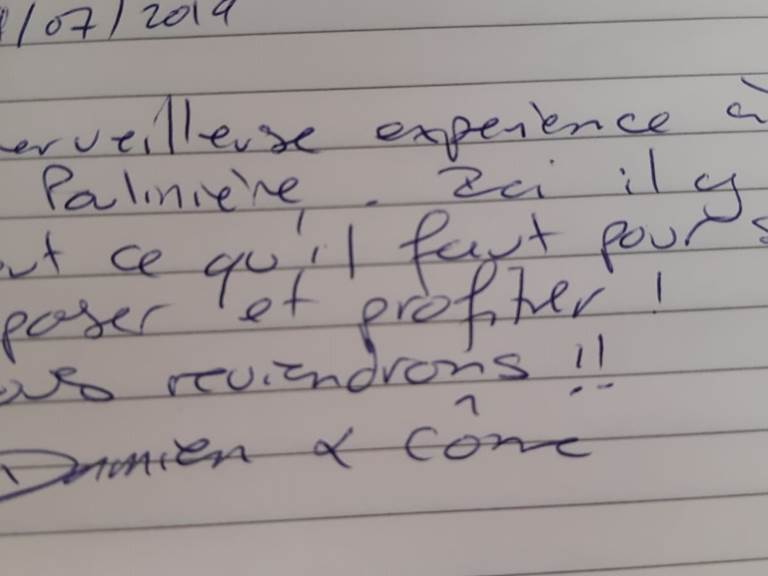 /07/2019
erveilleuse expérience à
Palinière. Ici il y
out ce qu'il faut pour s
poser et profiter !
ous reviendrons !!
Damien & Côme